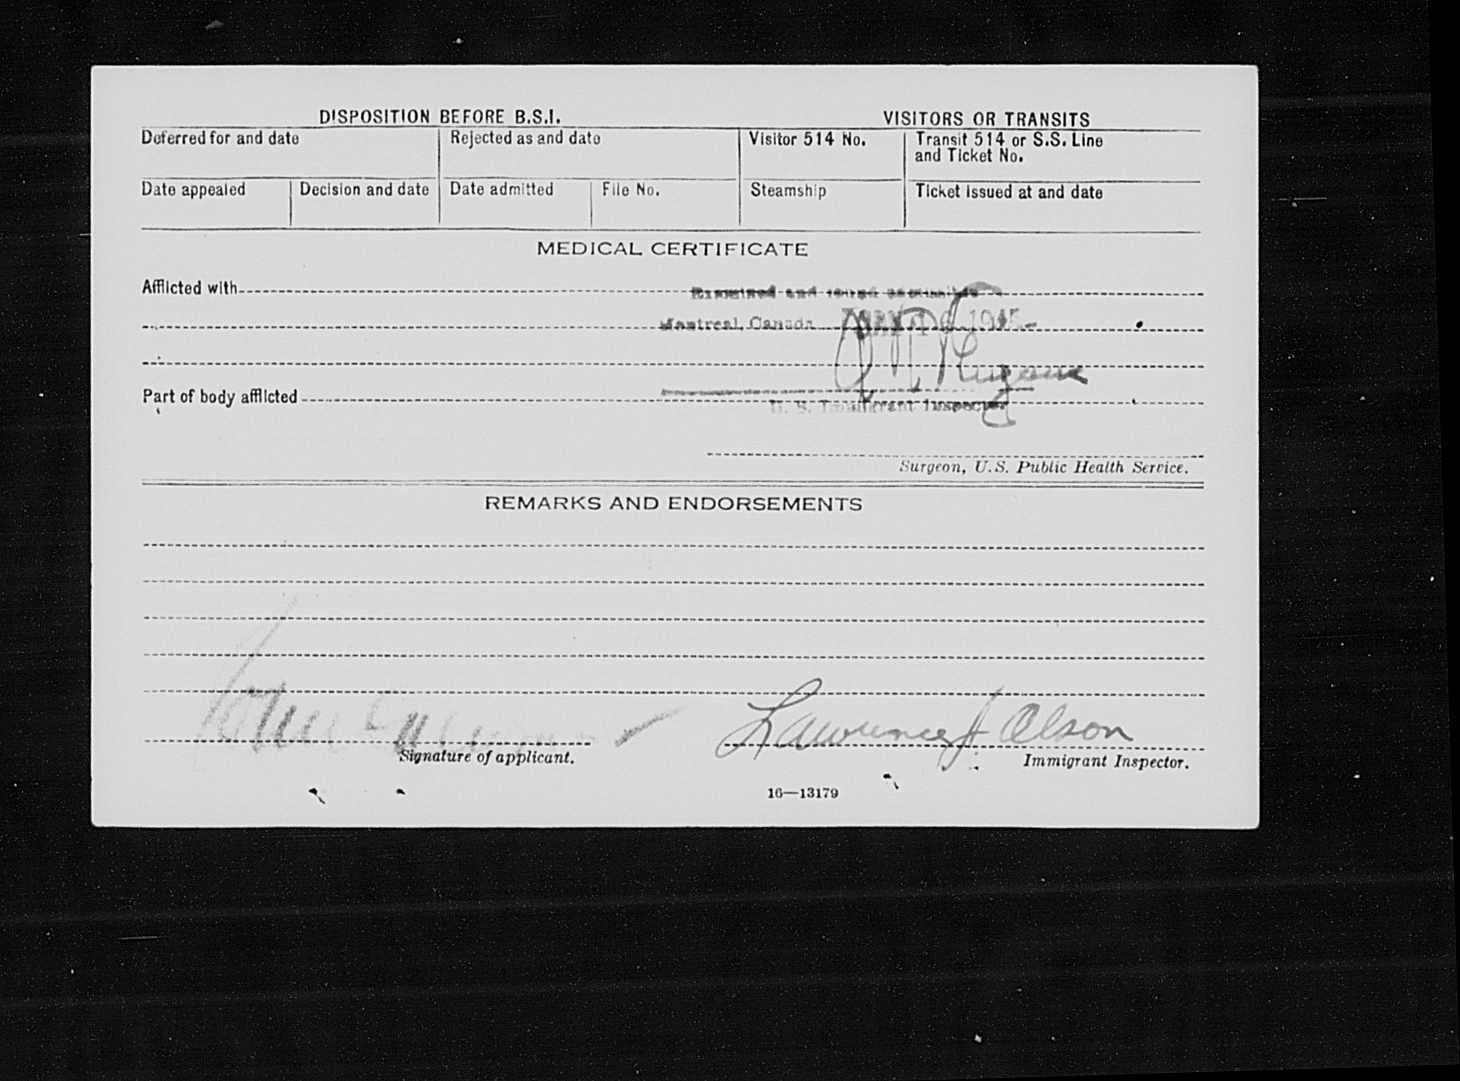 DISPOSITION BEFORE B.S.I.
VISITORS OR TRANSITS
Deferred for and date
Rejected as and date
Visitor 514 No.
Transit 514 or S.S. Line
and Ticket No.
Date appealed
Decision and date
Date admitted
File No.
Steamship
Ticket issued at and date
MEDICAL CERTIFICATE
Afflicted with
Examined and found admissible
Montreal, Canada 1945
Part of body afflicted
U. S. Immigrant Inspector
Surgeon, U.S. Public Health Service.
REMARKS AND ENDORSEMENTS
Lawrence J Olson
Signature of applicant.
Immigrant Inspector.
16—13179